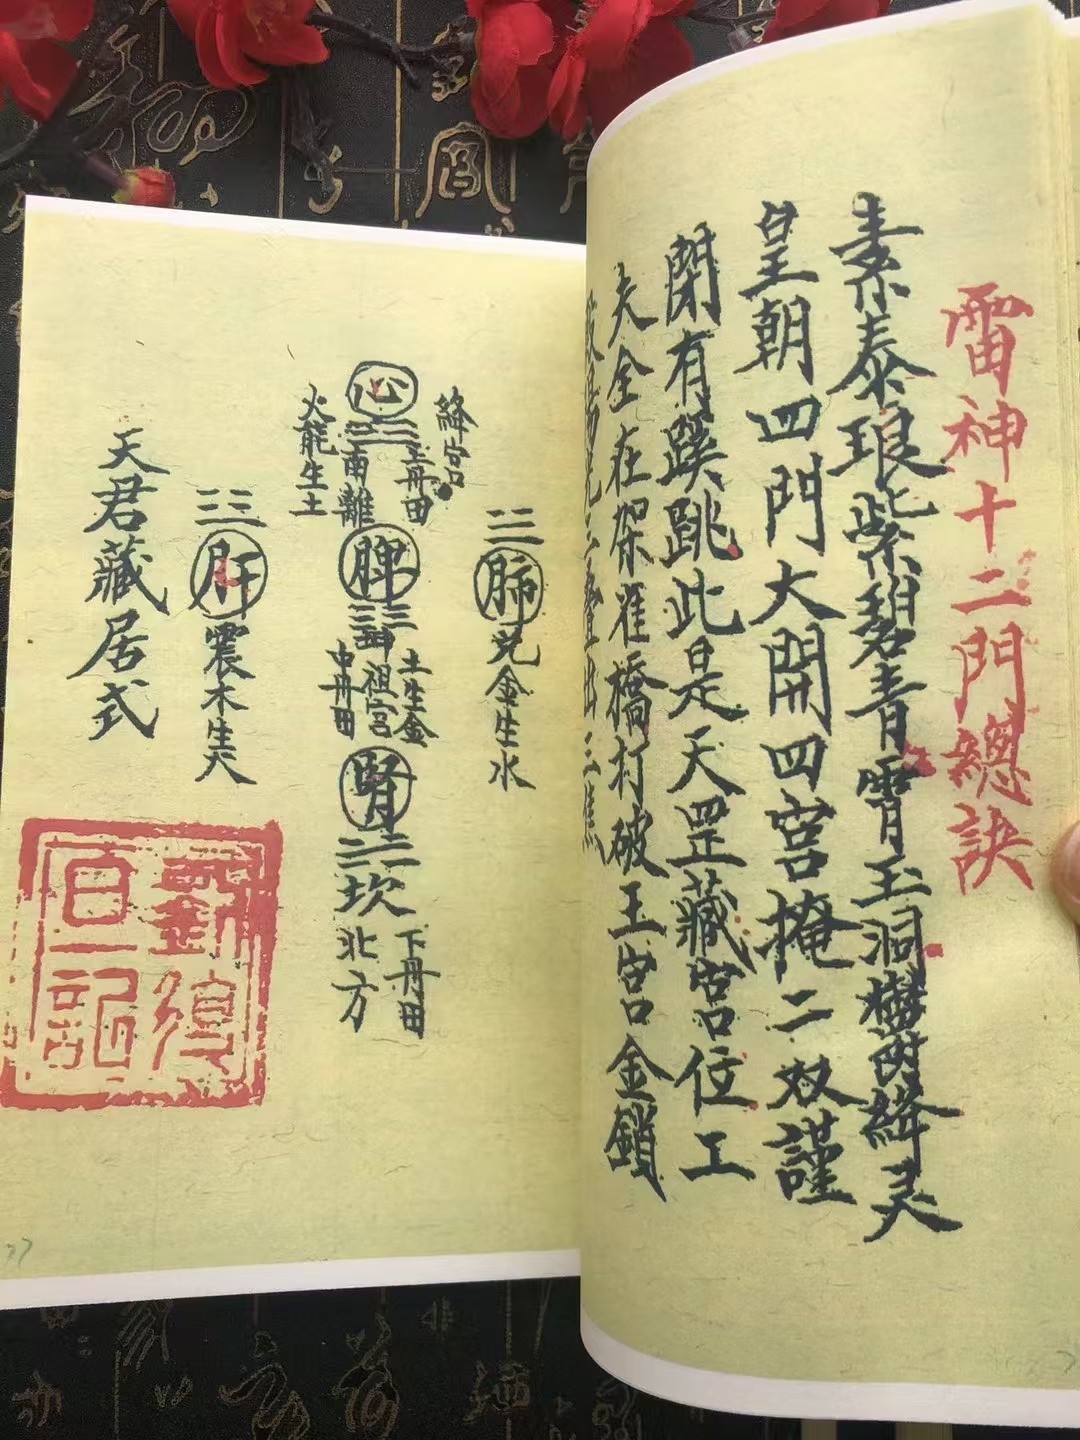 雷神十二門總訣
素泰琅紫碧青霄玉洞 絳灵
皇朝四門大開四宫掩二双謹
閉有蹊跳此是天罡藏宫位工
夫全在架雀橋打破王宫金鎖
肺
兌金生水
絳宫
上丹田
心
南離
火能生土
脾
坤祖宫
土生金
中丹田
腎
坎
北方
下丹田
肝
震木生火
天君藏居式
劉
百一記